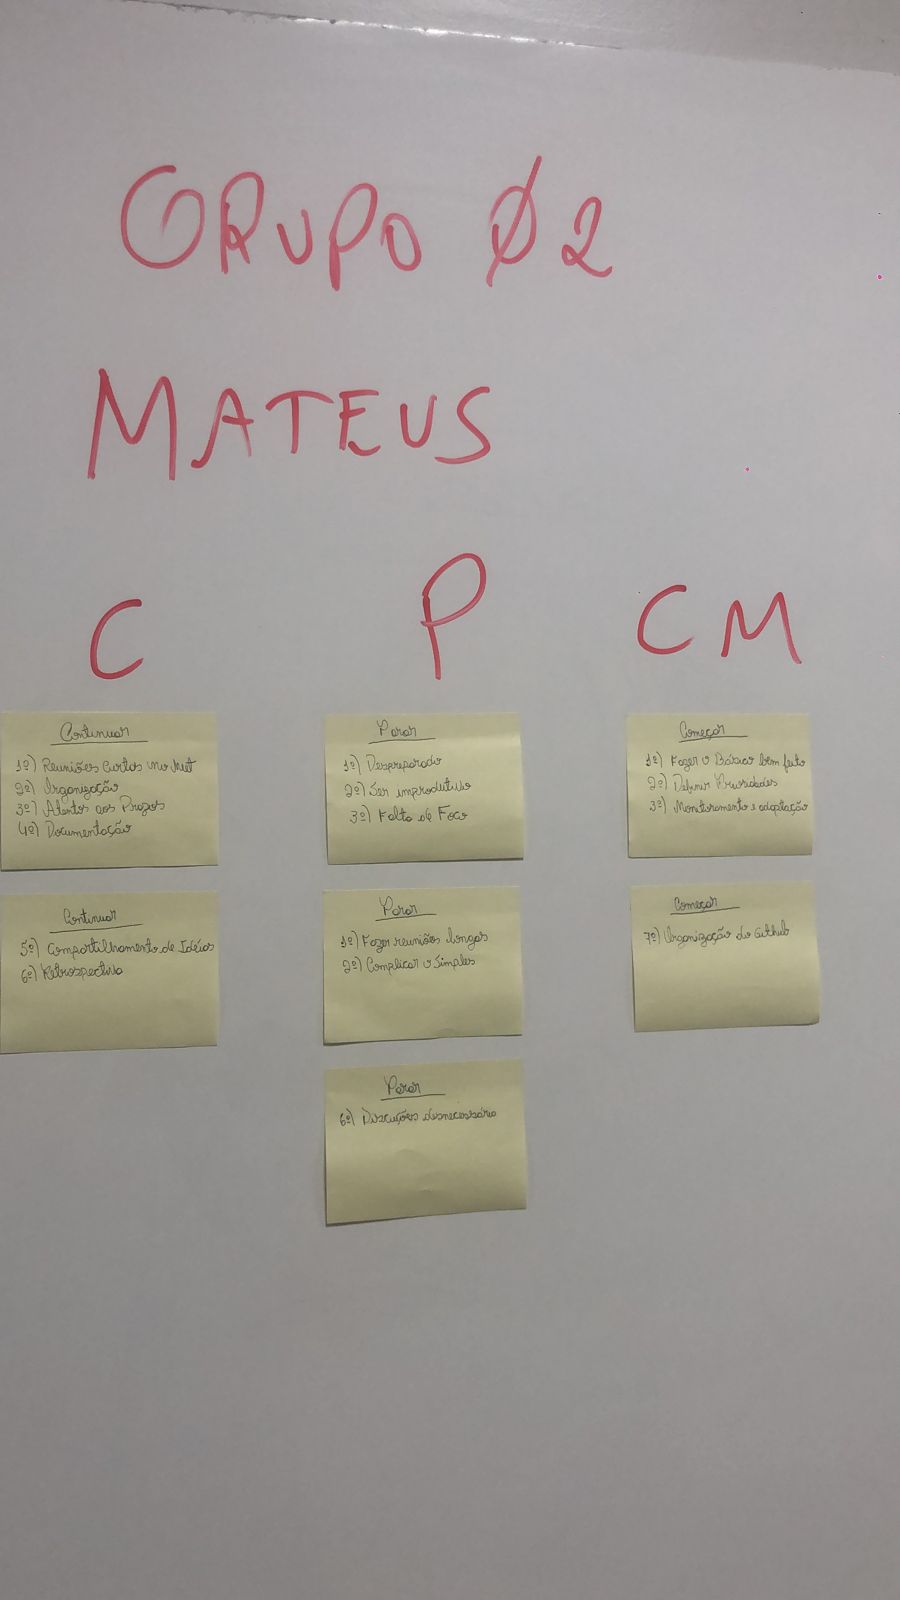 GRUPO Ø2
MATEUS
C
P
CM
Continuar
1º) Reuniões Curtas no Met
2º) Organização
3º) Atentos aos Prazos
4º) Documentação
Continuar
5º) Compartilhamento de Idéias
6º) Retrospectiva
Parar
1º) Despreparado
2º) Ser improdutivo
3º) Falta de Foco
Parar
1º) Fazer reuniões longas
2º) Complicar o simples
Parar
6º) Discuções desnecessário
Começar
1º) Fazer o Básico bem feito
2º) Definir Prioridades
3º) Monitoramento e adaptação
Começar
7º) Organização do Github